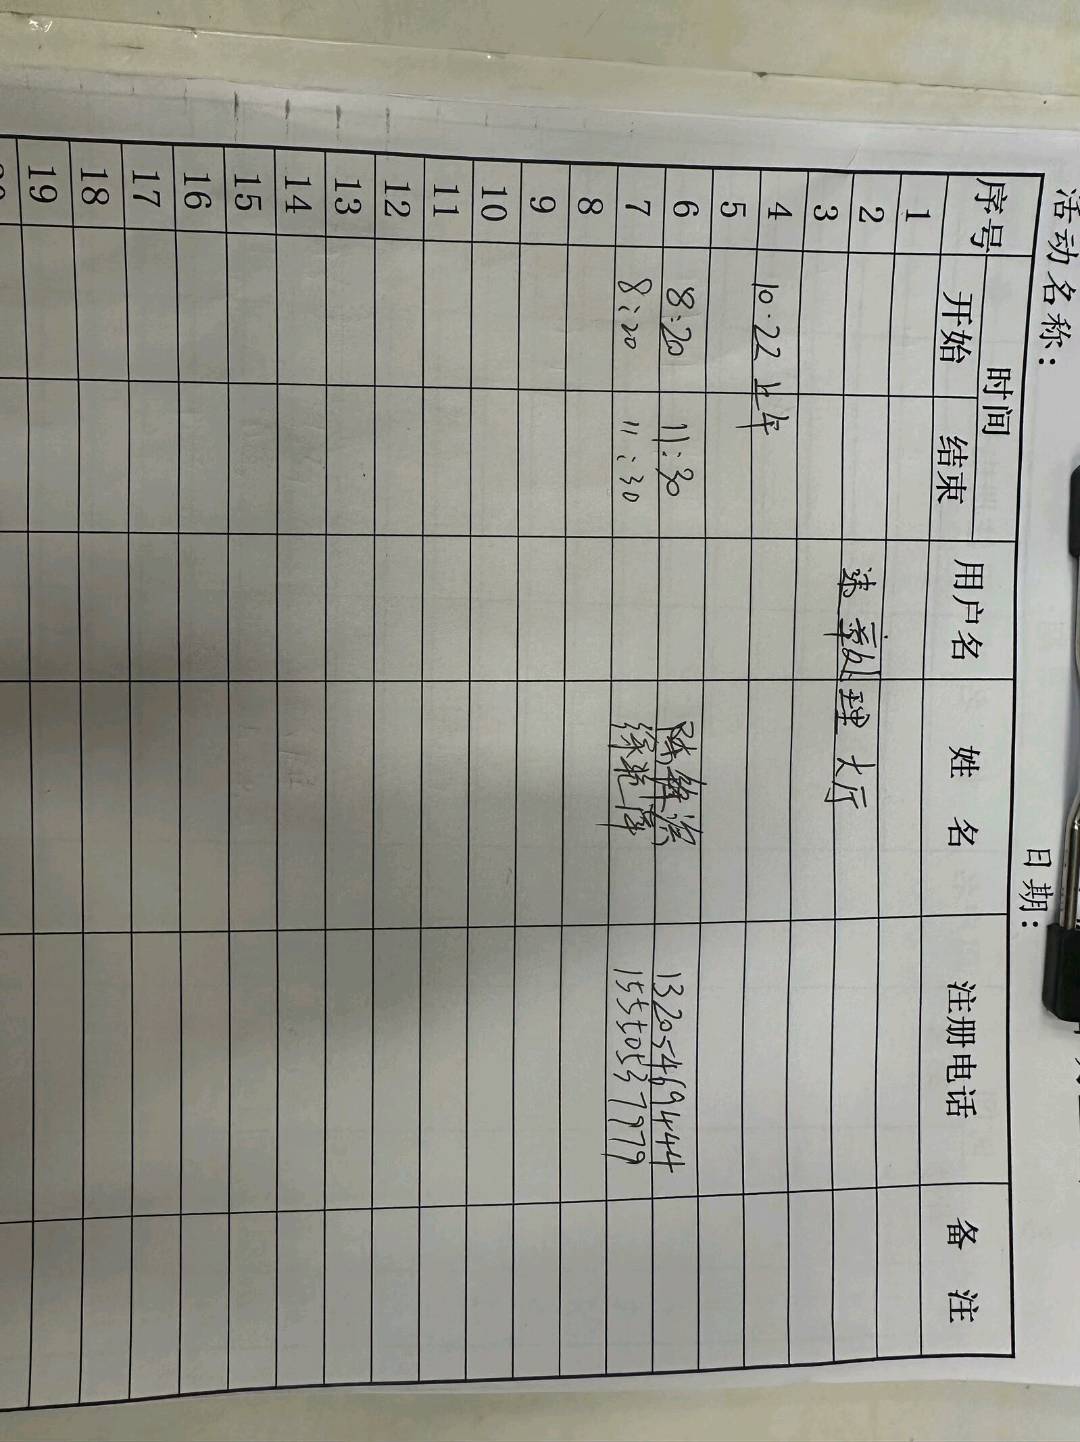 活动名称: 日期:
序号 时间 用户名 姓 名 注册电话 备 注
开始 结束
1
2 处理大厅
3
4 10.22 上午
5
6 8:20 11:30 13205469444
7 8:20 11:30 徐艳萍 15505379779
8
9
10
11
12
13
14
15
16
17
18
19